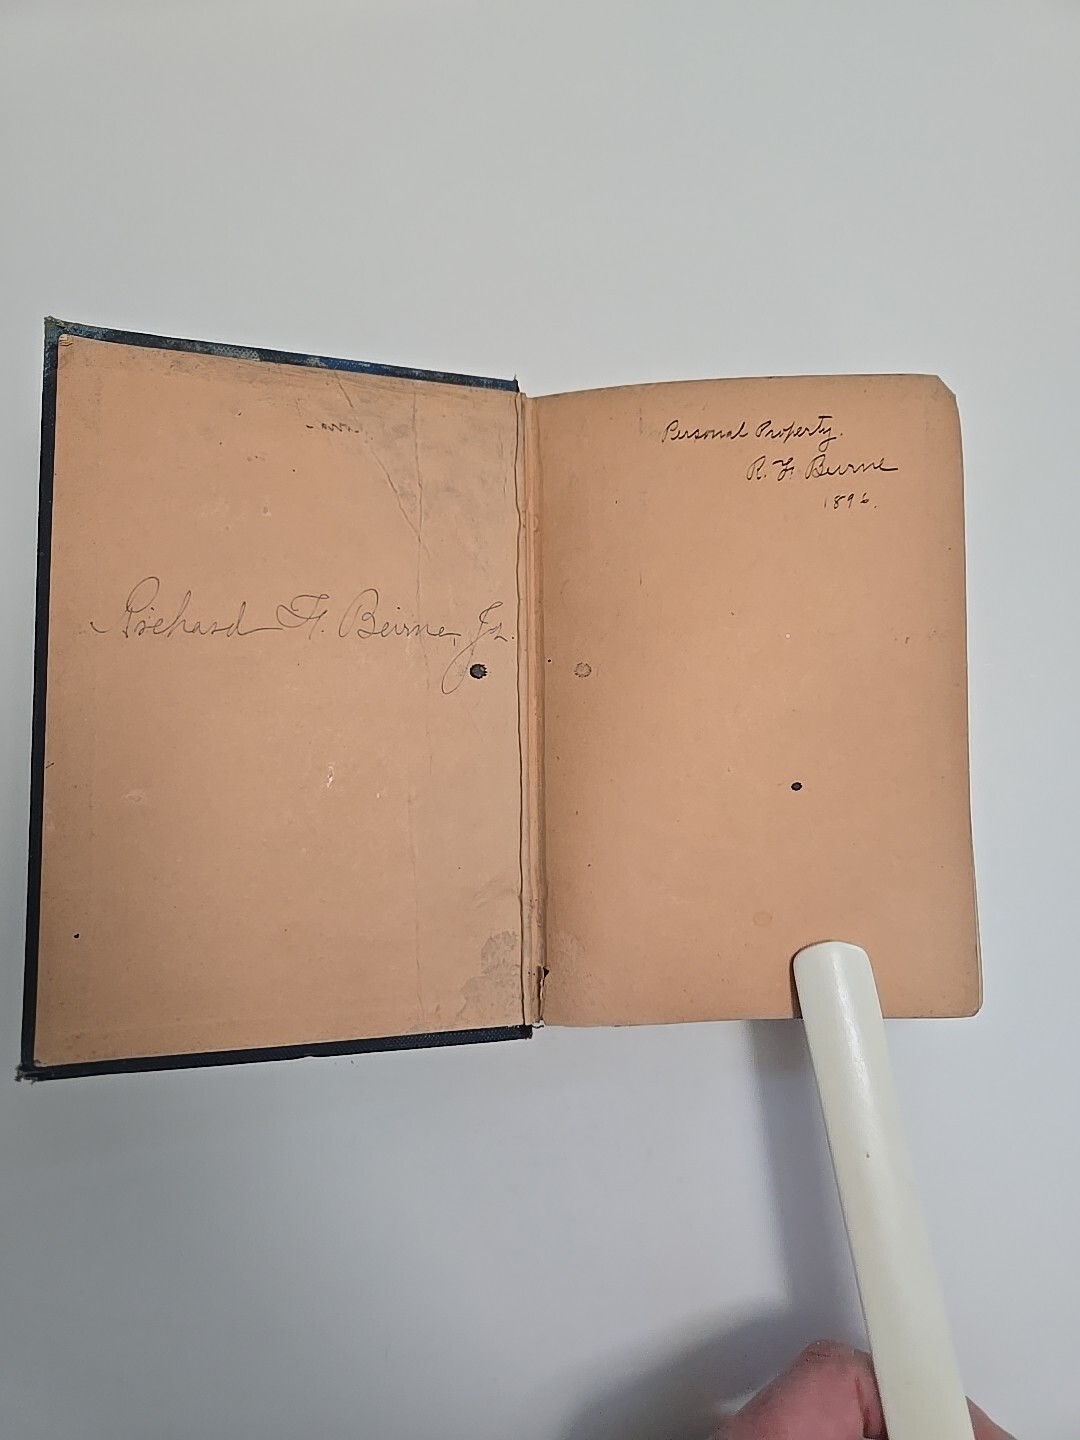 Richard F. Beirne, Jr.
Personal Property.
R. F. Beirne
1896.